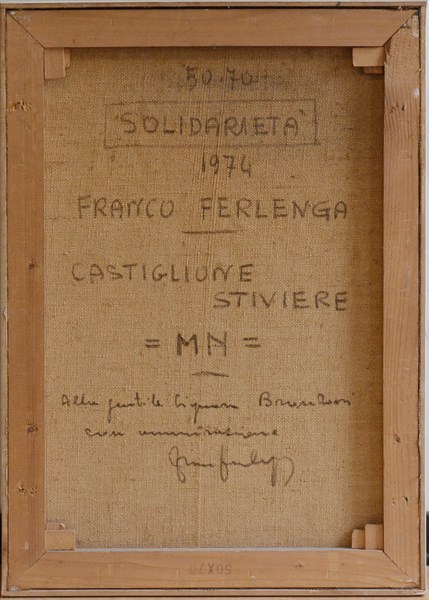 50.70
"SOLIDARIETÀ"
1974
FRANCO FERLENGA
CASTIGLIONE
STIVIERE
= MN =
Alla gentile Signora
con ammirazione
50X70